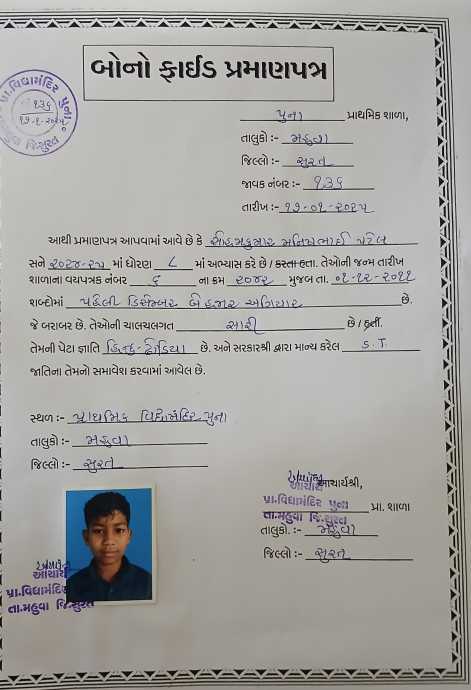 બોનો ફાઈડ પ્રમાણપત્ર
પ્રા.વિદ્યામંદિર પુના
૧૩૬
જિ.સુરત
પુના પ્રાથમિક શાળા,
તાલુકો :- મહુવા
જિલ્લો :- સુરત
જાવક નંબર :- ૧૩૬
તારીખ :- ૧૭-૦૧-૨૦૨૫
આથી પ્રમાણપત્ર આપવામાં આવે છે કે પટેલ
સને ૨૦૨૪-૨૫ માં ધોરણ ૮ માં અભ્યાસ કરે છે / કરતા હતા. તેઓની જન્મ તારીખ
શાળાના વયપત્રક નંબર ૬ ના ક્રમ ૨૦૪૨ મુજબ તા. ૦૧-૧૨-૨૦૧૧
શબ્દોમાં પહેલી ડિસેમ્બર બે હજાર અગિયાર છે.
જે બરાબર છે. તેઓની ચાલચલગત સારી છે / હતી.
તેમની પેટા જ્ઞાતિ હિન્દુ-ઢોડિયા છે. અને સરકારશ્રી દ્વારા માન્ય કરેલ S.T.
જાતિના તેમનો સમાવેશ કરવામાં આવેલ છે.
સ્થળ :- પ્રાથમિક વિદ્યામંદિર પુના
તાલુકો :- મહુવા
જિલ્લો :- સુરત
આચાર્ય આચાર્યશ્રી,
પ્રા.વિદ્યામંદિર પુના પ્રા. શાળા
તા.મહુવા જિ.સુરત
તાલુકો. :- મહુવા
જિલ્લો :- સુરત
આચાર્ય
પ્રા.વિદ્યામંદિ
તા.મહુવા જિ.સુરત